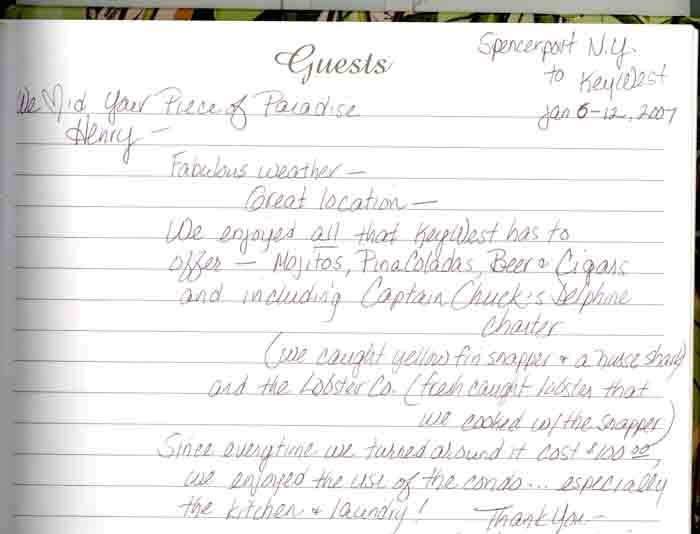 Guests
Spencerport N.Y.
to Key West
Jan 6-12, 2007
We ♡'d your Piece of Paradise
Henry —
Fabulous weather —
Great location —
We enjoyed all that Key West has to
offer — Mojitos, Pina Coladas, Beer & Cigars
and including Captain Chuck's Delphine
charter
(we caught yellow fin snapper & a nurse shark)
and the Lobster Co. (fresh caught lobster that
we cooked w/ the snapper)
Since everytime we turned around it cost $100.00,
we enjoyed the use of the condo... especially
the kitchen & laundry! Thank You —